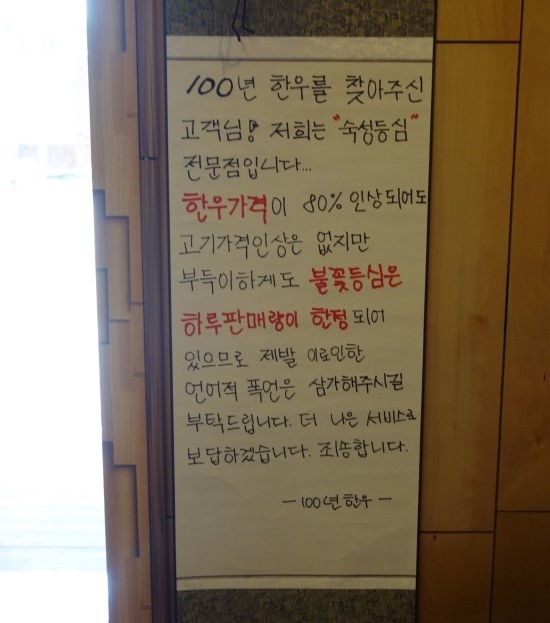 100년 한우를 찾아주신
고객님! 저희는 "숙성등심"
전문점입니다...
한우가격이 80% 인상되어도
고기가격인상은 없지만
부득이하게도 불꽃등심은
하루판매량이 한정되어
있으므로 제발 이로인한
언어적 폭언은 삼가해주시길
부탁드립니다. 더 나은 서비스로
보답하겠습니다. 죄송합니다.
- 100년한우 -